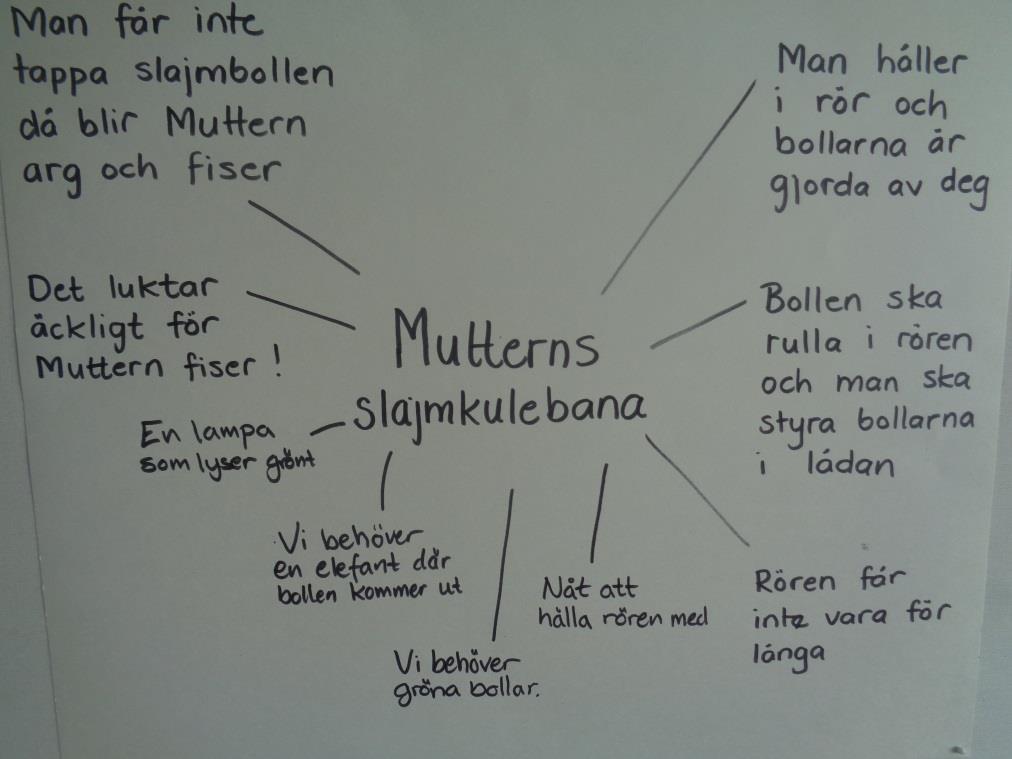 Man får inte
tappa slajmbollen
då blir Muttern
arg och fiser
Man håller
i rör och
bollarna är
gjorda av deg
Det luktar
äckligt för
Muttern fiser!
Mutterns
slajmkulebana
Bollen ska
rulla i rören
och man ska
styra bollarna
i lådan
En lampa
som lyser grönt
Vi behöver
en elefant där
bollen kommer ut
Nåt att
hålla rören med
Rören får
inte vara för
långa
Vi behöver
gröna bollar.